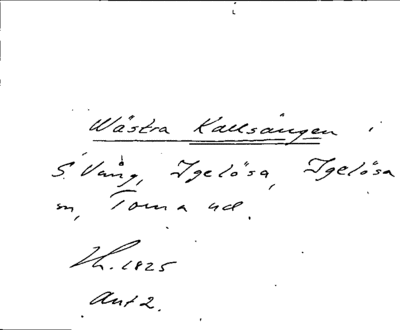 Wästra Kallsängen i
S. Vång, Igelösa, Igelösa
sn, Torna hd.
Sk. 1825
Akt 2.